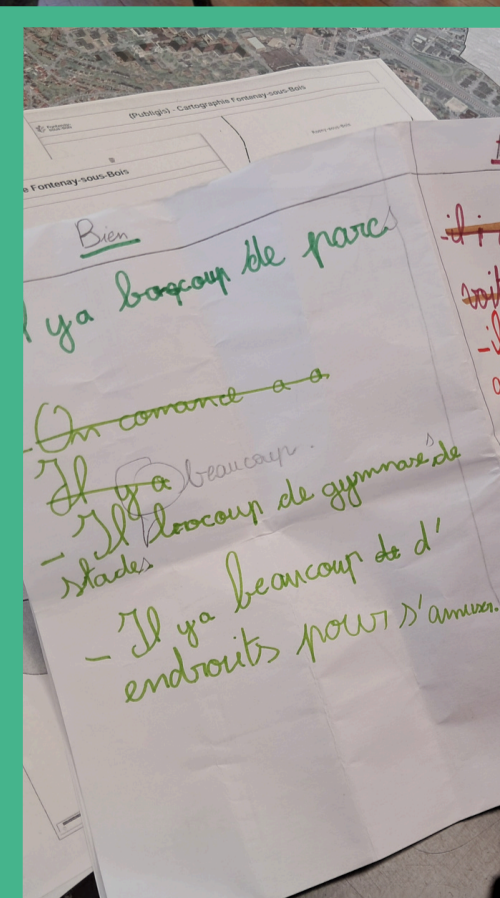 (Publigis) - Cartographie Fontenay-sous-Bois
e Fontenay-sous-Bois
Bien
l ya bocoup de parcs
- On comance a a
Il ya beaucoup.
- Il bocoup de gymnases de
stades
- Il ya beaucoup de d'
endroits pour s'amuser.
- il i
voit
- il